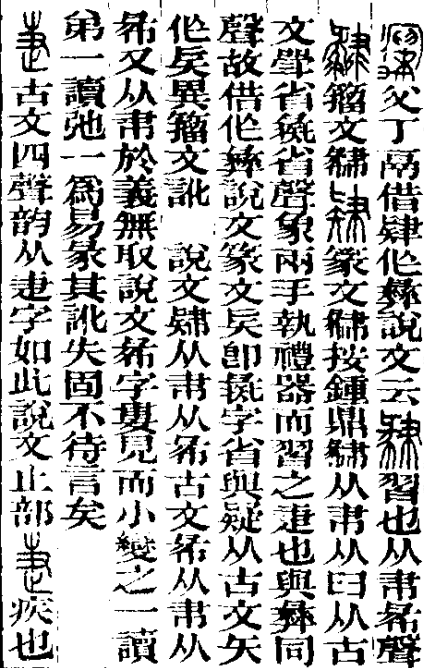 父丁鬲借肄作彝說文云習也从聿㣇聲
籀文篆文按鍾鼎从聿从曰从古
文省省聲象兩手執禮器而習之疌也與彝同
聲故借作彝說文篆文矣即字省與疑从古文矢
作矣異籀文訛　說文肄从聿从㣇古文㣇从聿从
㣇又从聿於義無取說文㣇字婁見而小變之一讀
弟一讀弛一為易彖其訛失固不待言矣
疌古文四聲韵从疌字如此說文止部疌疾也